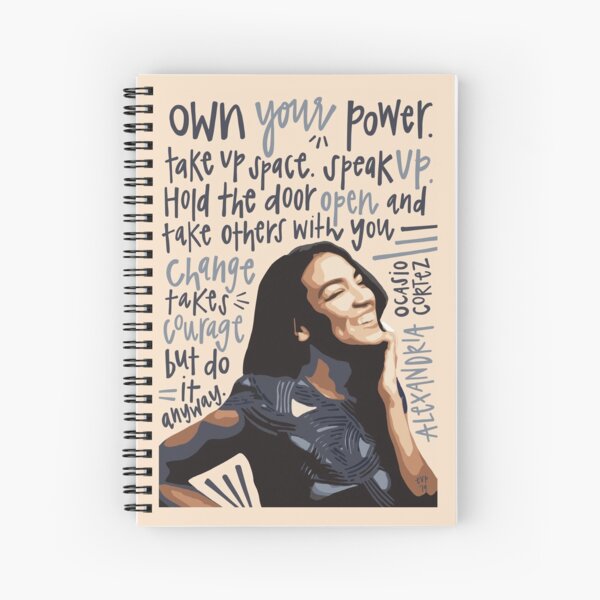 own your power.
take up space. speak up.
Hold the door open and
take others with you
change
takes
courage
but do
it
anyway.
ALEXANDRIA
OCASIO
CORTEZ